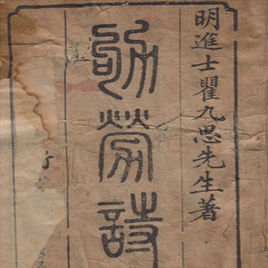 明進士瞿九思先生著
勞詩